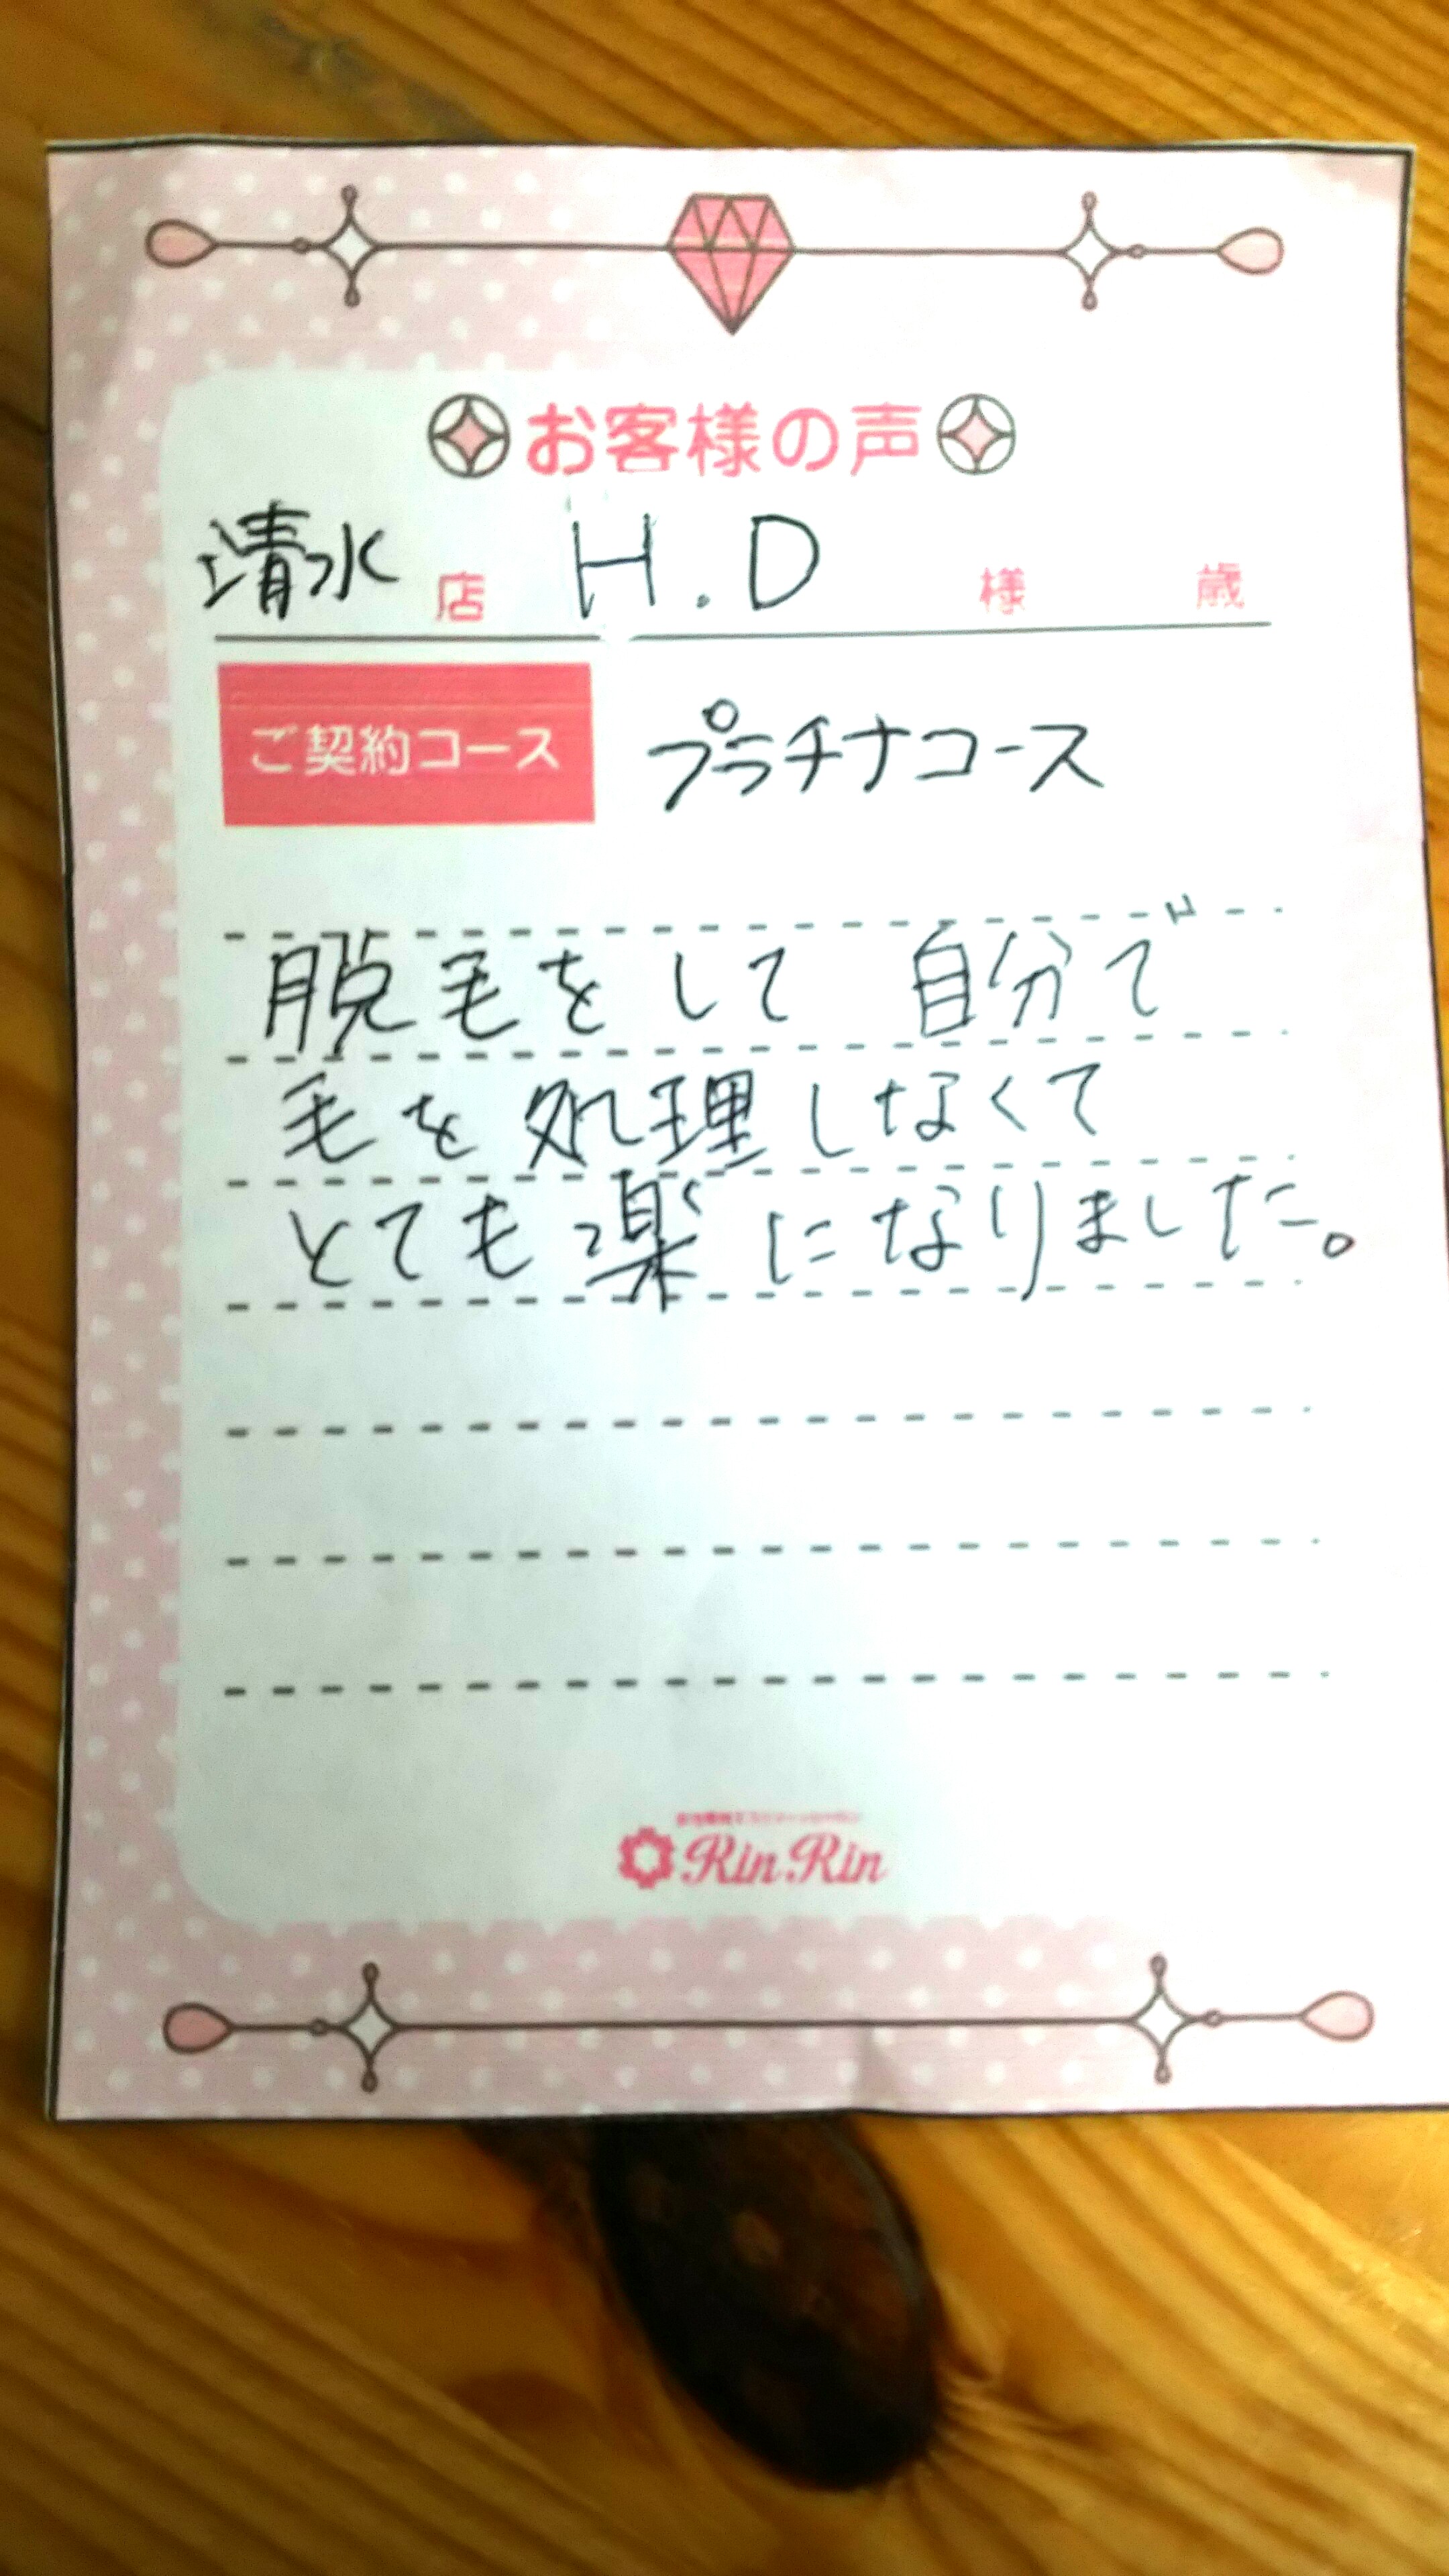 お客様の声
清水 店 H.D 様 歳
ご契約コース プラチナコース
脱毛をして 自分で
毛を処理しなくて
とても楽になりました。
RinRin